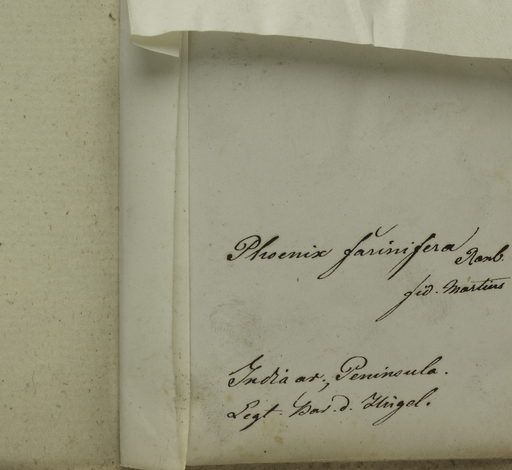 Phoenix farinifera Roxb
fid. Martius
India or, Peninsula.
Legt. Bar. d. Hügel.